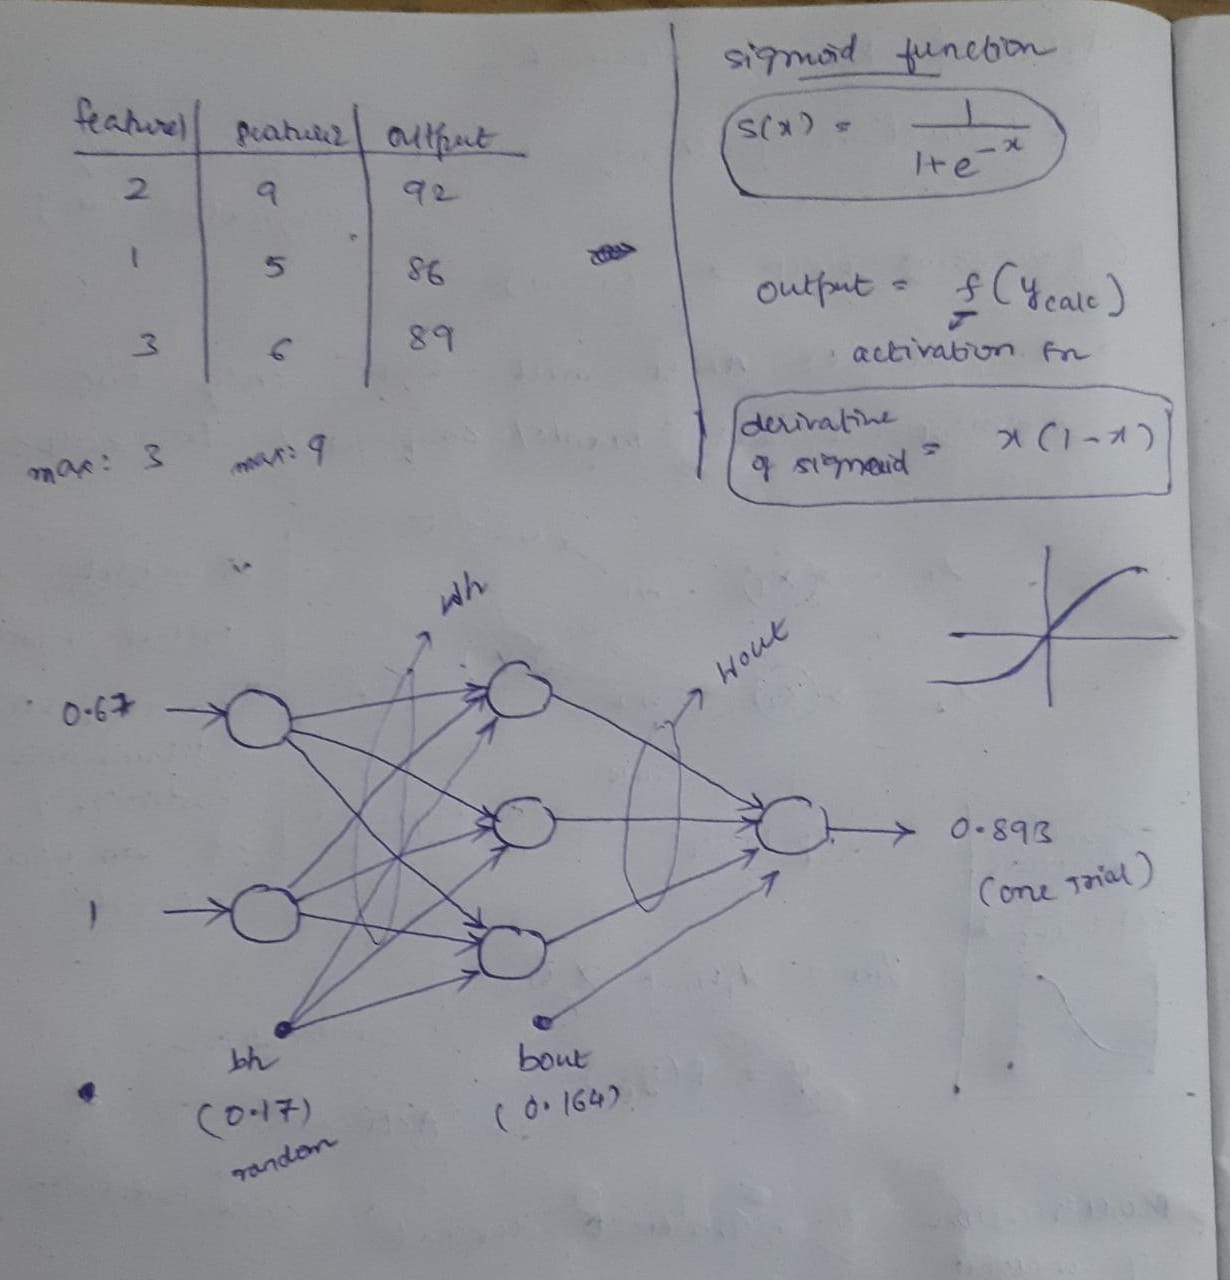 feature1 feature2 output
2 9 92
1 5 86
3 6 89
max: 3 max: 9
sigmoid function
S(x) = 1 / 1+e^-x
output = f(ycalc)
activation fn
derivative
of sigmoid = x(1-x)
wh
wout
0.67
1
0.893
(one trial)
bh
(0.17)
random
bout
(0.164)